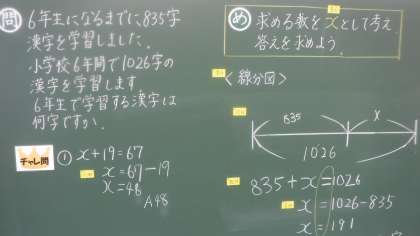 問
6年生になるまでに,835字
漢字を学習しました。
小学校6年間で1026字の
漢字を学習します。
6年生で学習する漢字は
何字ですか。
チャレ問
① x+19=67
x=67-19
x=48
A.48
め
求める数をxとして考え、
答えを求めよう。
<線分図>
835 x
1026
835+x=1026
x=1026-835
x=191